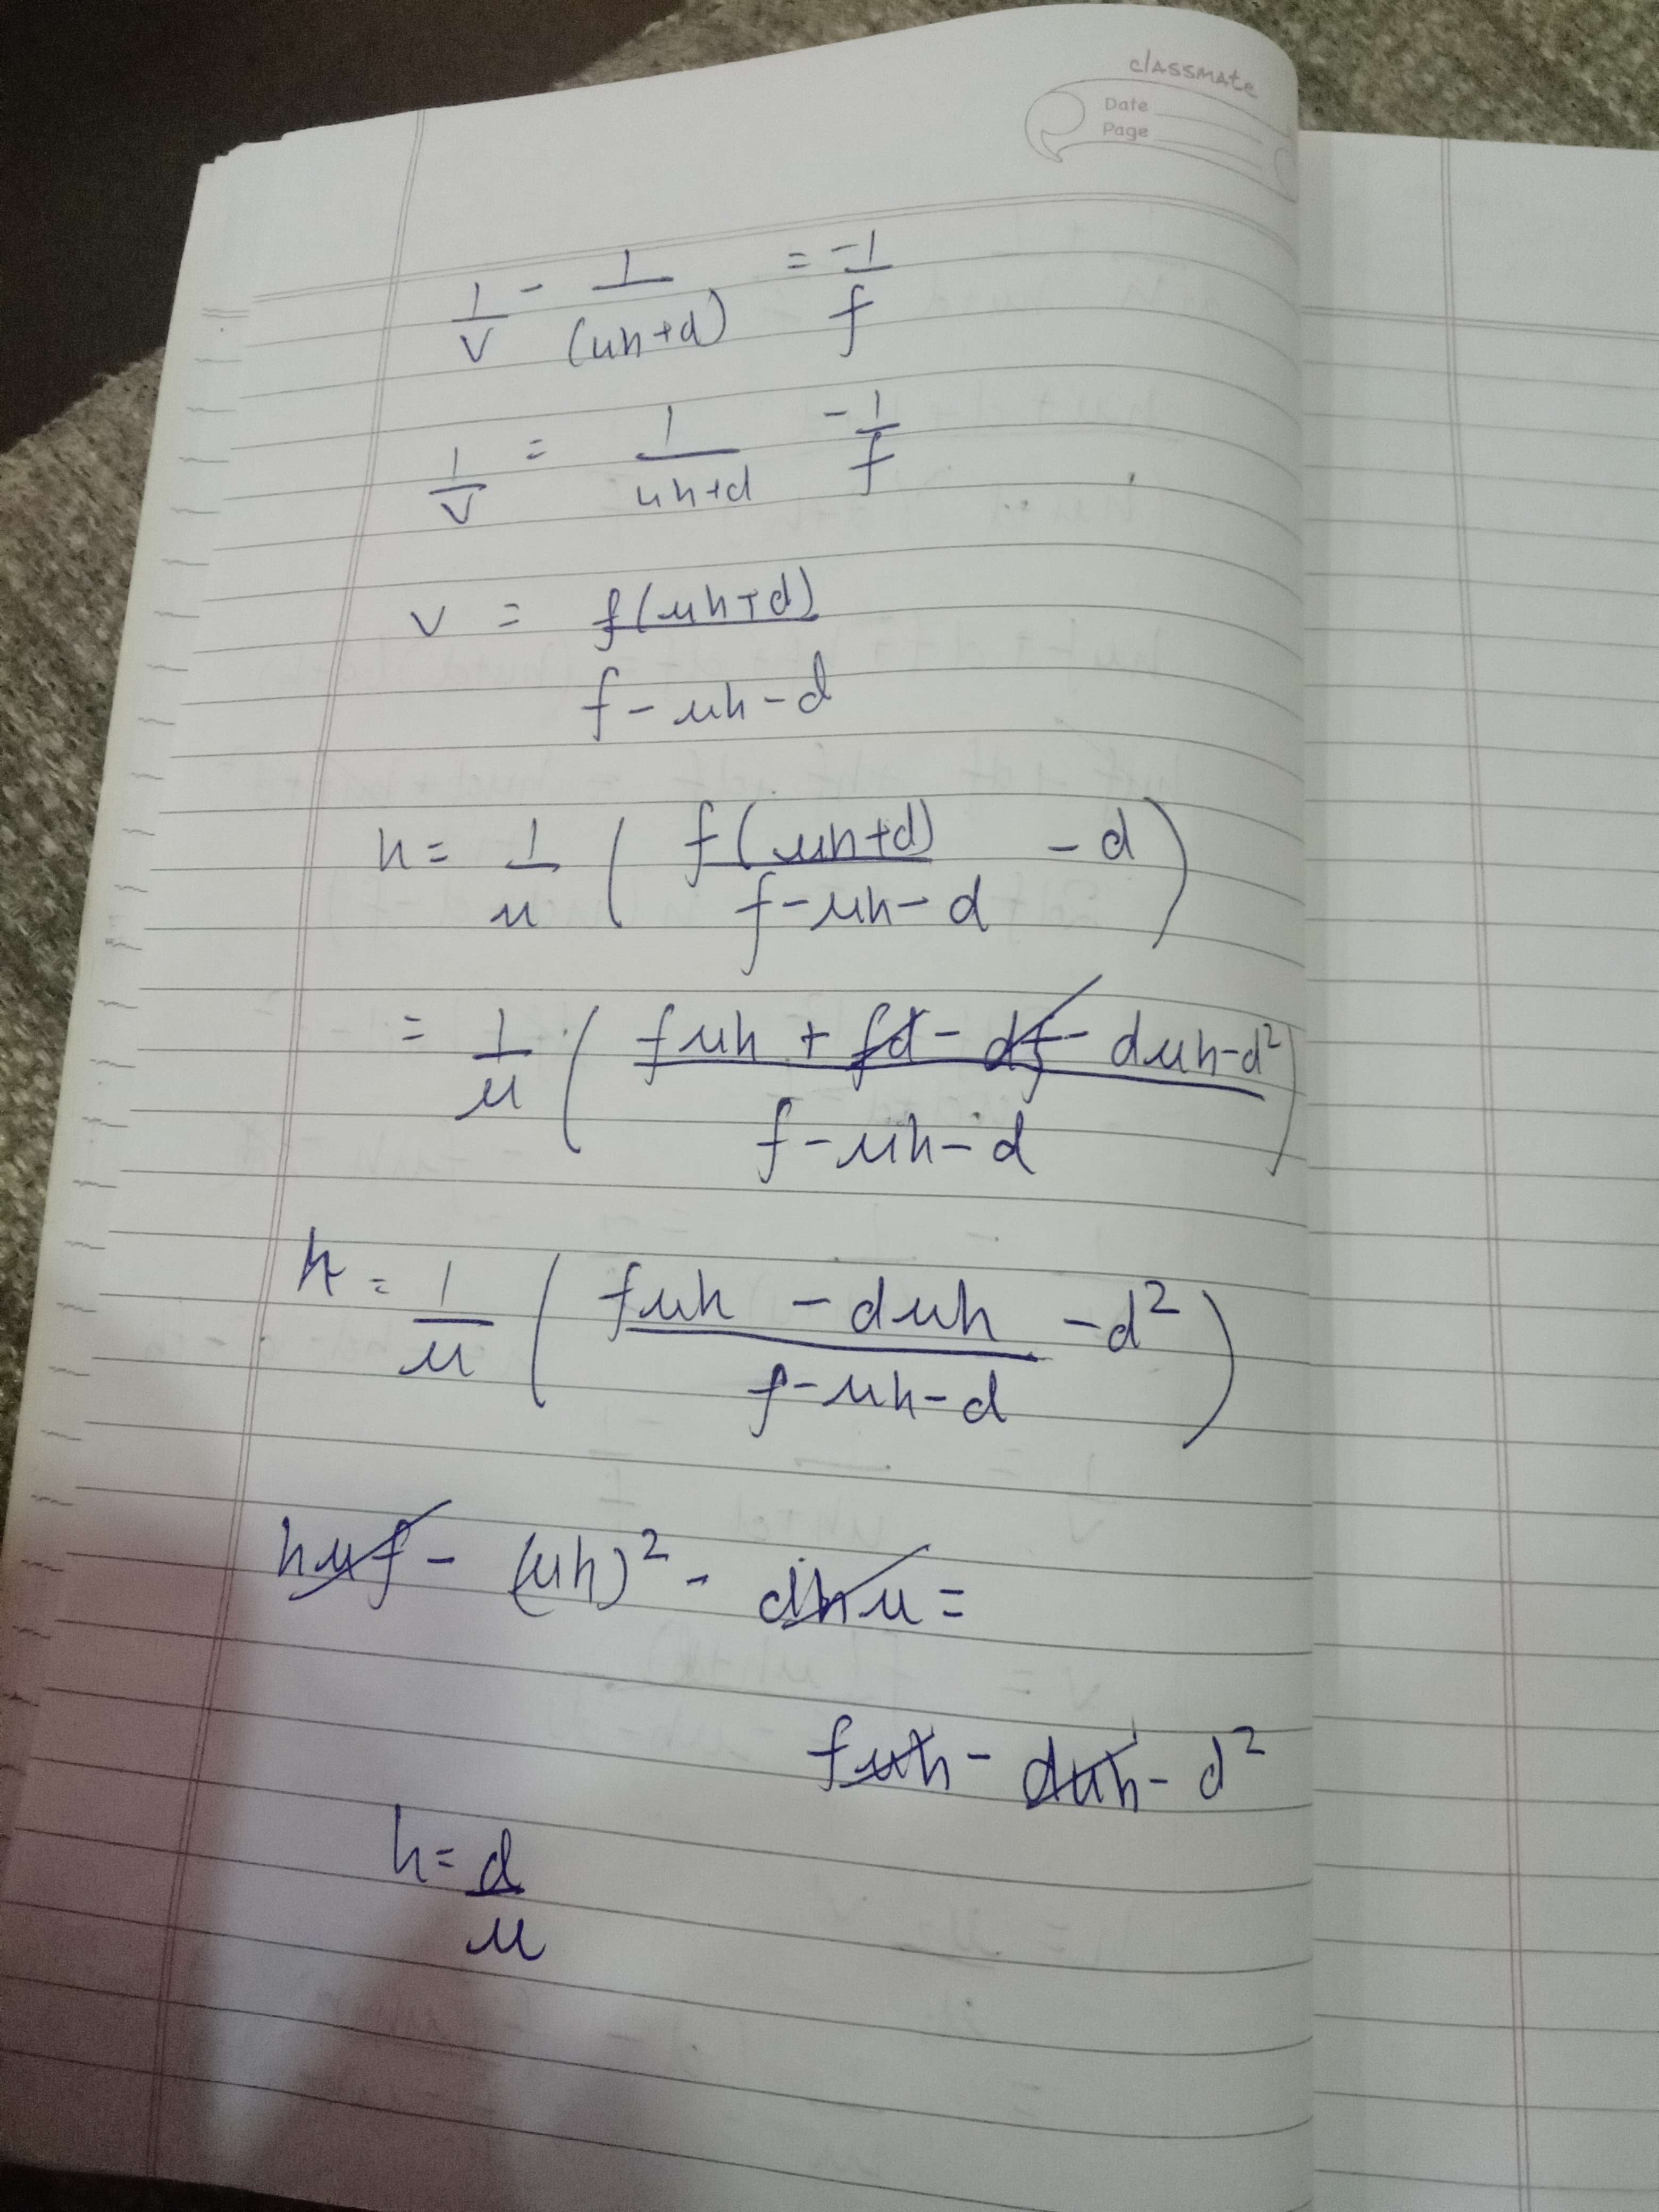 classmate
Date
Page
1/v - 1/(μh+d) = -1/f
1/v = 1/μh+d - 1/f
v = f(μh+d)/f-μh-d
h = 1/μ ( f(μh+d)/f-μh-d - d )
= 1/μ ( fμh + fd - df - dμh-d²/f-μh-d )
h = 1/μ ( fμh - dμh - d²/f-μh-d )
hμf - (μh)² - dhμ =
fμh - dμh - d²
h = d/μ